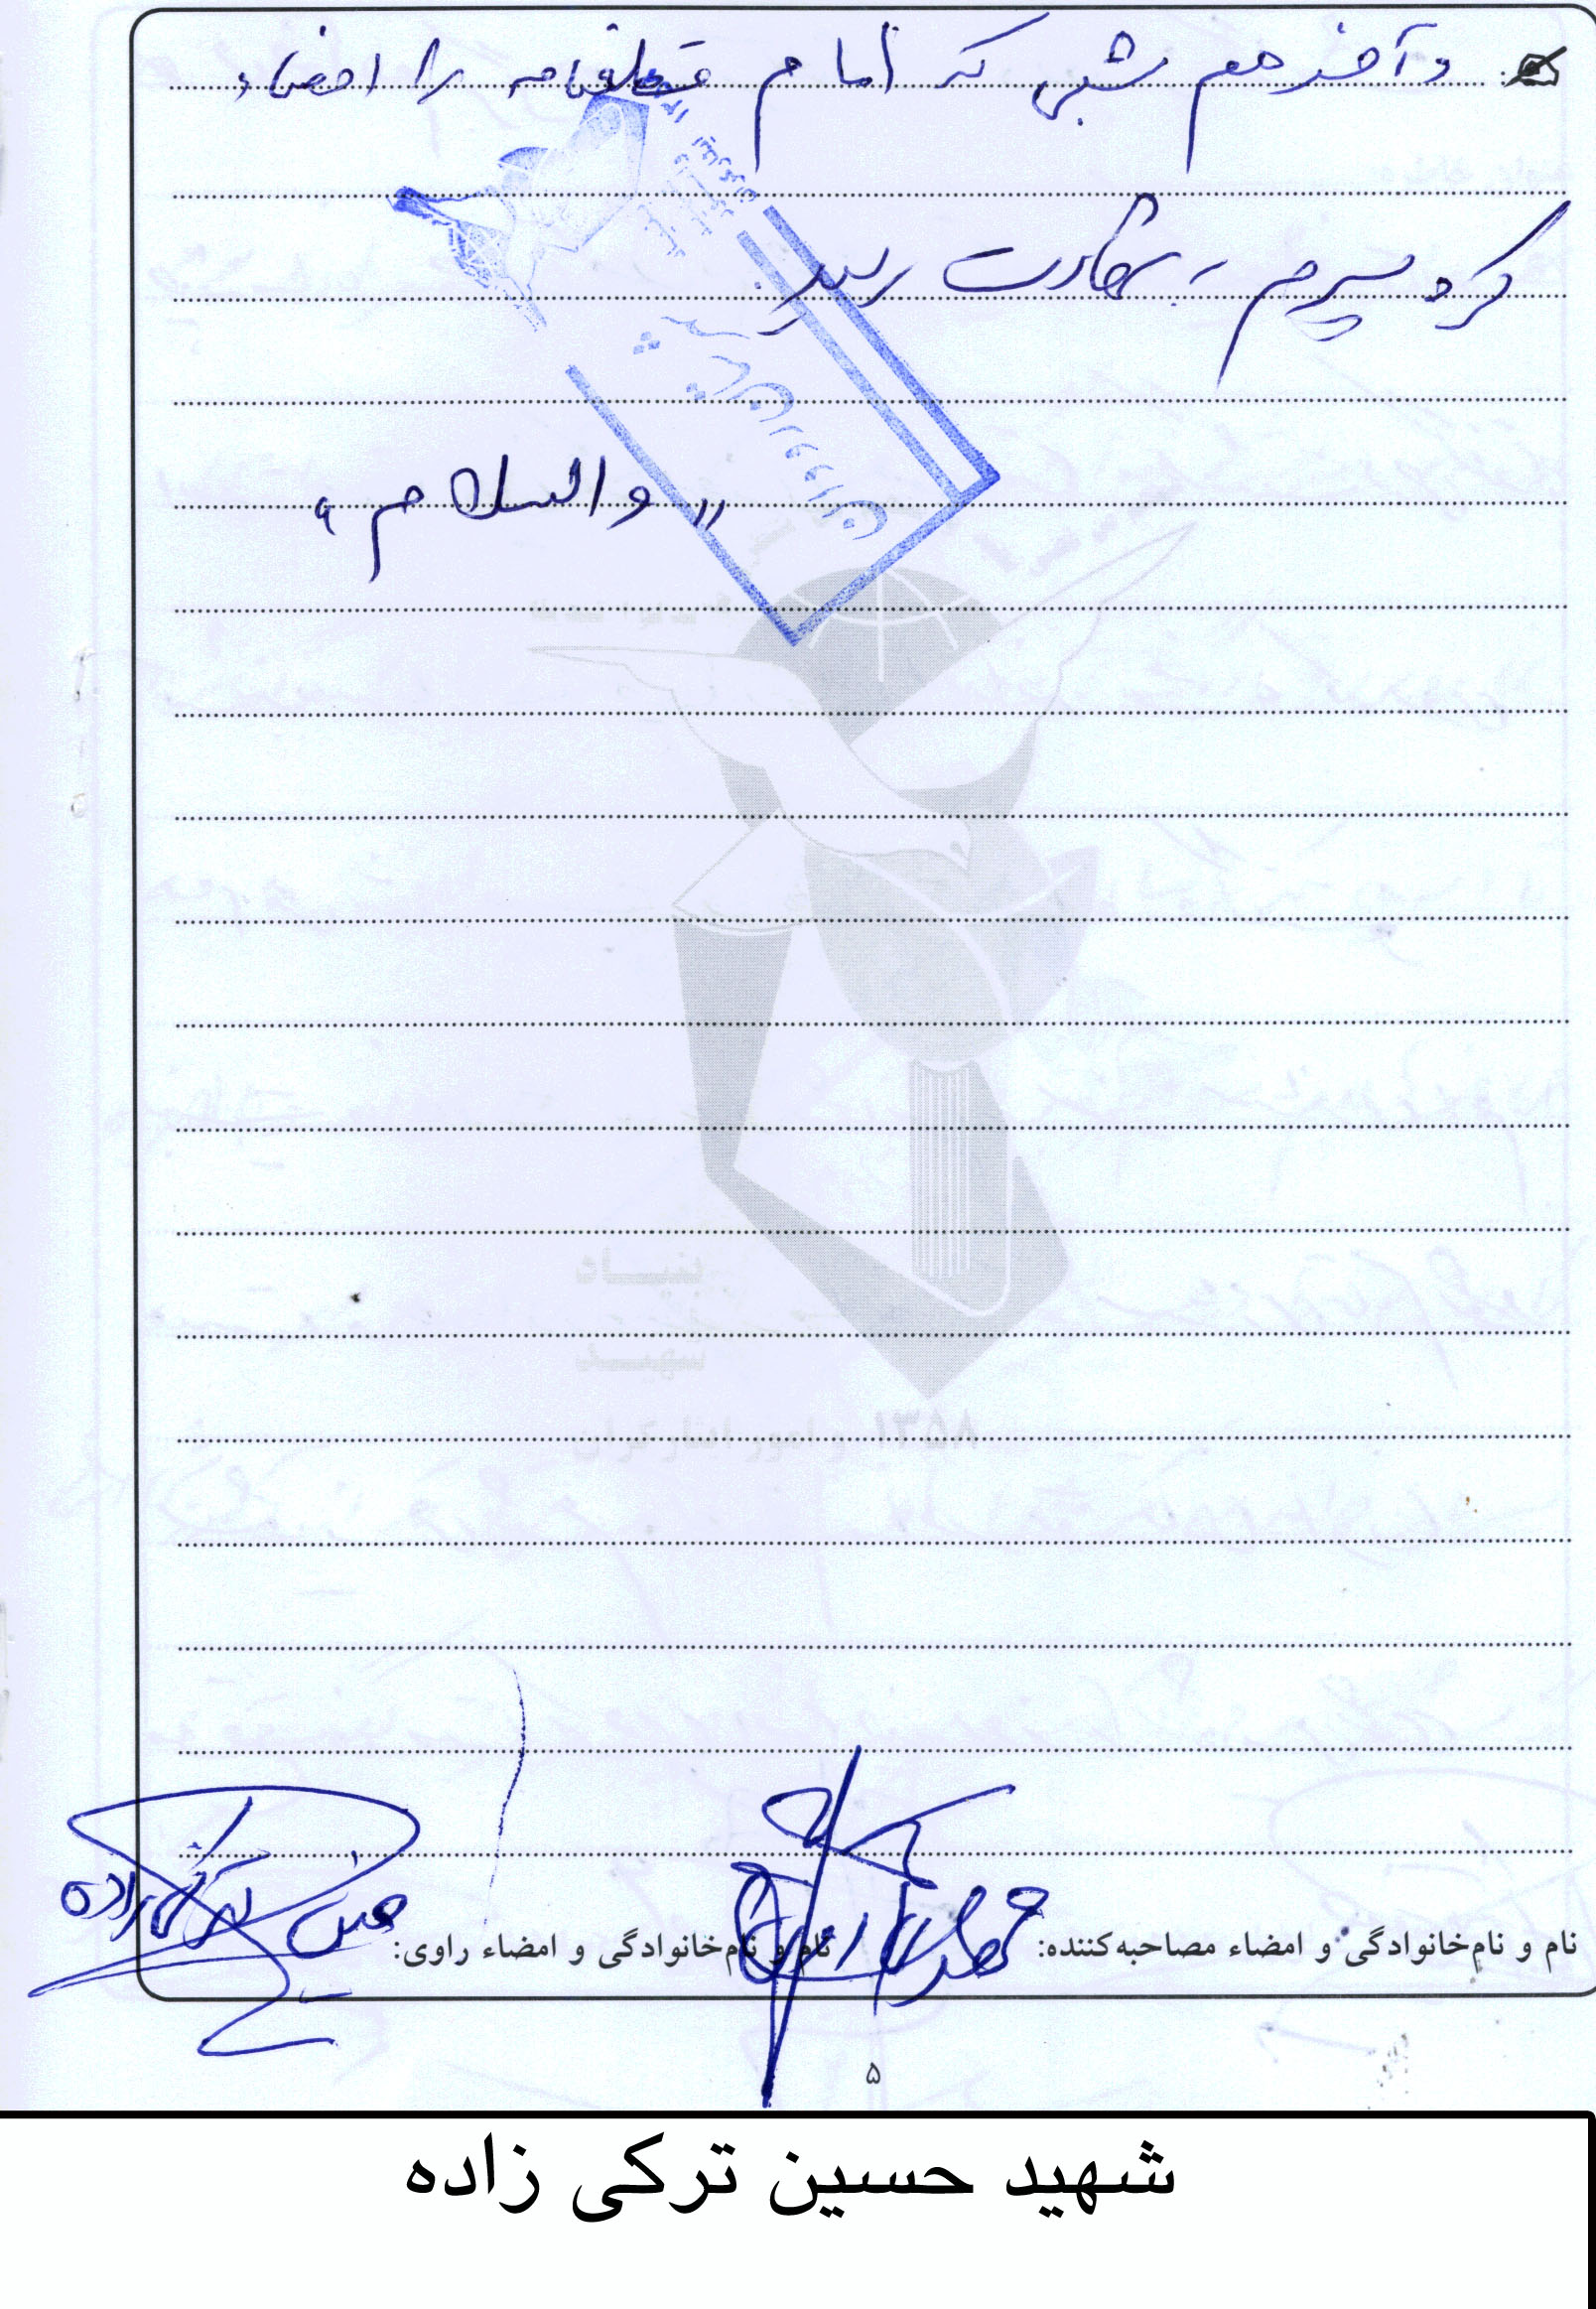 و آخر هم شبی که امام قطعنامه را امضاء
کرد پسرم به شهادت رسید.
"والسلام"
بنیاد
شهید
۱۳۵۸ و امور ایثارگران
نام و نام‌خانوادگی و امضاء مصاحبه‌کننده: نام و نام‌خانوادگی و امضاء راوی: ترکی زاده
۵
شهید حسین ترکی زاده